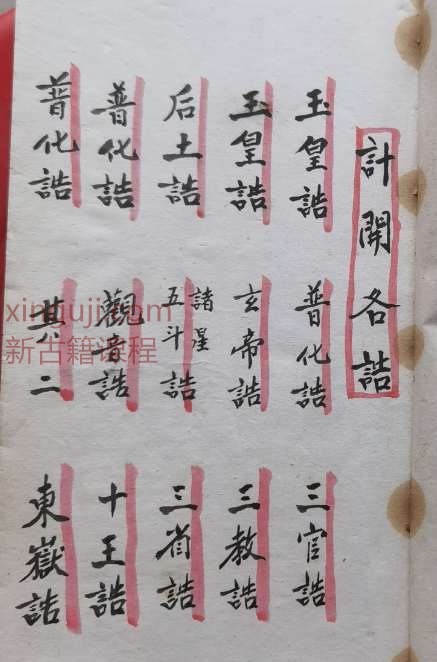 計開各誥
玉皇誥
普化誥
三官誥
玉皇誥
玄帝誥
三教誥
后土誥
諸星五斗誥
三省誥
普化誥
觀音誥
十王誥
普化誥
其二
東嶽誥
新古籍课程